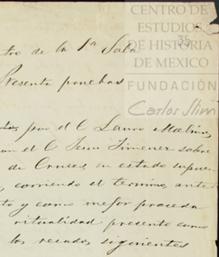 CENTRO DE
ESTUDIOS
DE HISTORIA
DE MEXICO
FUNDACIÓN
Carlos Slim
de la 1ª Sala
Presenta pruebas
por el C Lauro
el C Jimenez sobre
de Cruces en estado
corriendo el termino
y como mejor proceda
ritualidad presento como
los recados siguientes